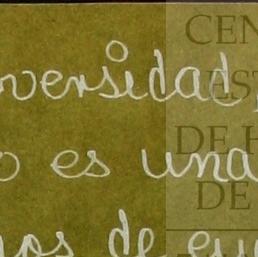 versidad,
o es una
os de eu
CEN
EST
DE H
DE